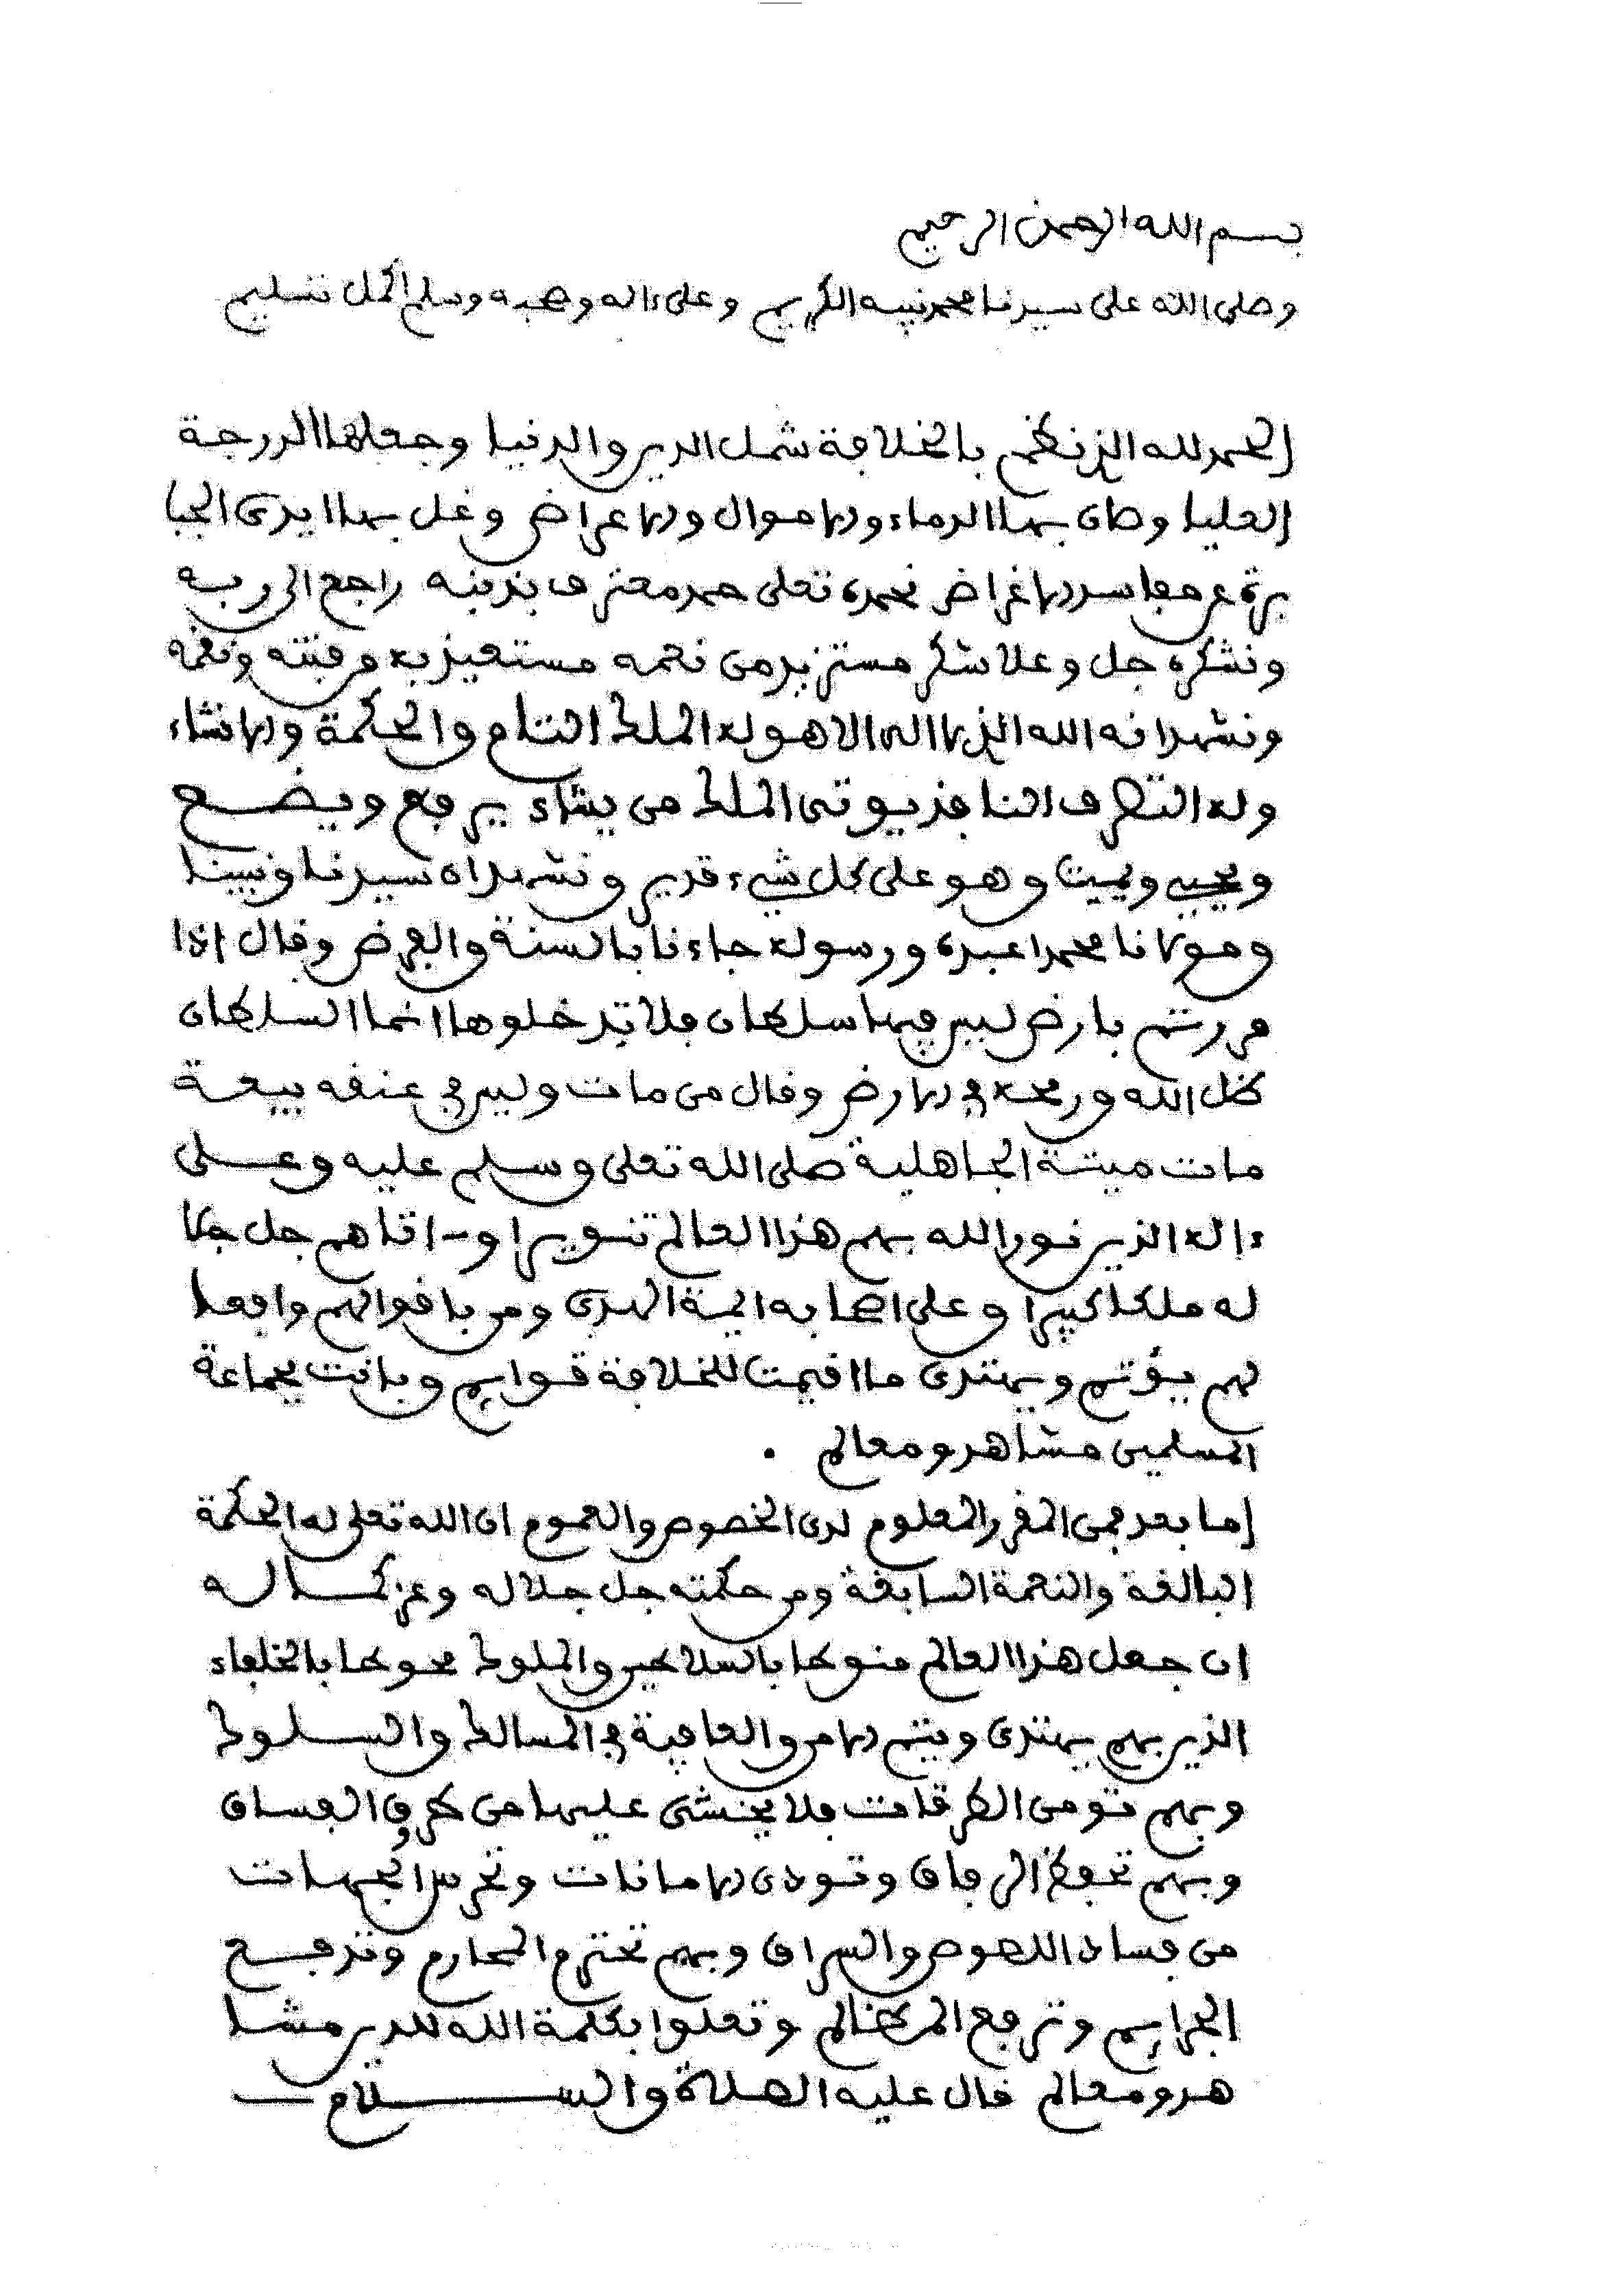 بسم الله الرحمن الرحيم
وصلى الله على سيدنا محمد نبيه الكريم وعلى ءاله وصحبه وسلم أكمل تسليم
الحمد لله الذي نظم بالخلافة شمل الدين والدنيا وجعلها الدرجة
العليا وصان بها الدماء والاموال والاعراض وغل بها ايدى الجبا
برة عن مفاسد الاغراض نحمده تعلى حمد معترف بذنبه راجع الى ربه
ونشكره جل وعلا شكر مستزيد من نعمه مستعيذ به من فتنته ونقمه
ونشهد انه الله الذي لا اله الا هو له الملك التام والحكمة والانشاء
وله التصرف النافذ يوتى الملك من يشاء يرفع ويضع
ويحيى ويميت وهو على كل شيء قدير ونشهد ان سيدنا ونبينا
ومولانا محمدا عبده ورسوله جاءنا بالسنة والفرض وقال اذا
مررتم بارض ليس فيها سلطان فلا تدخلوها انما السلطان
ظل الله ورمحه في الارض وقال من مات وليس في عنقه بيعة
مات ميتة الجاهلية صلى الله تعلى وسلم عليه وعلى
ءاله الذين نور الله بهم هذا العالم تنويرا وءاتاهم جل جلا
له ملكا كبيرا وعلى اصحابه ايمة الهدى ومن باقوالهم وافعا
لهم يؤتم ويهتدى ما اقيمت للخلافة قوايم وبانت بجماعة
المسلمين مشاهد ومعالم .
اما بعد فمن المقرر المعلوم لدى الخصوص والعموم ان الله تعلى له الحكمة
البالغة والنعمة السابغة ومن حكمته جل جلاله وعز كماله
ان جعل هذا العالم منوطا بالسلاطين والملوك محوطا بالخلفاء
الذين بهم يهتدى ويتم الامن والعافية في المسالك والسلوك
وبهم تومن الطرقات فلا يخشى عليها من طرق الفساق
وبهم تحفظ الرفاق وتودى الامانات وتحرس الجهات
من فساد اللصوص والسراق وبهم تحترم المحارم وتدفع
الجرايم وترفع المظالم وتعلوا بكلمة الله للدين مشا
هد ومعالم قال عليه الصلاة والسلام